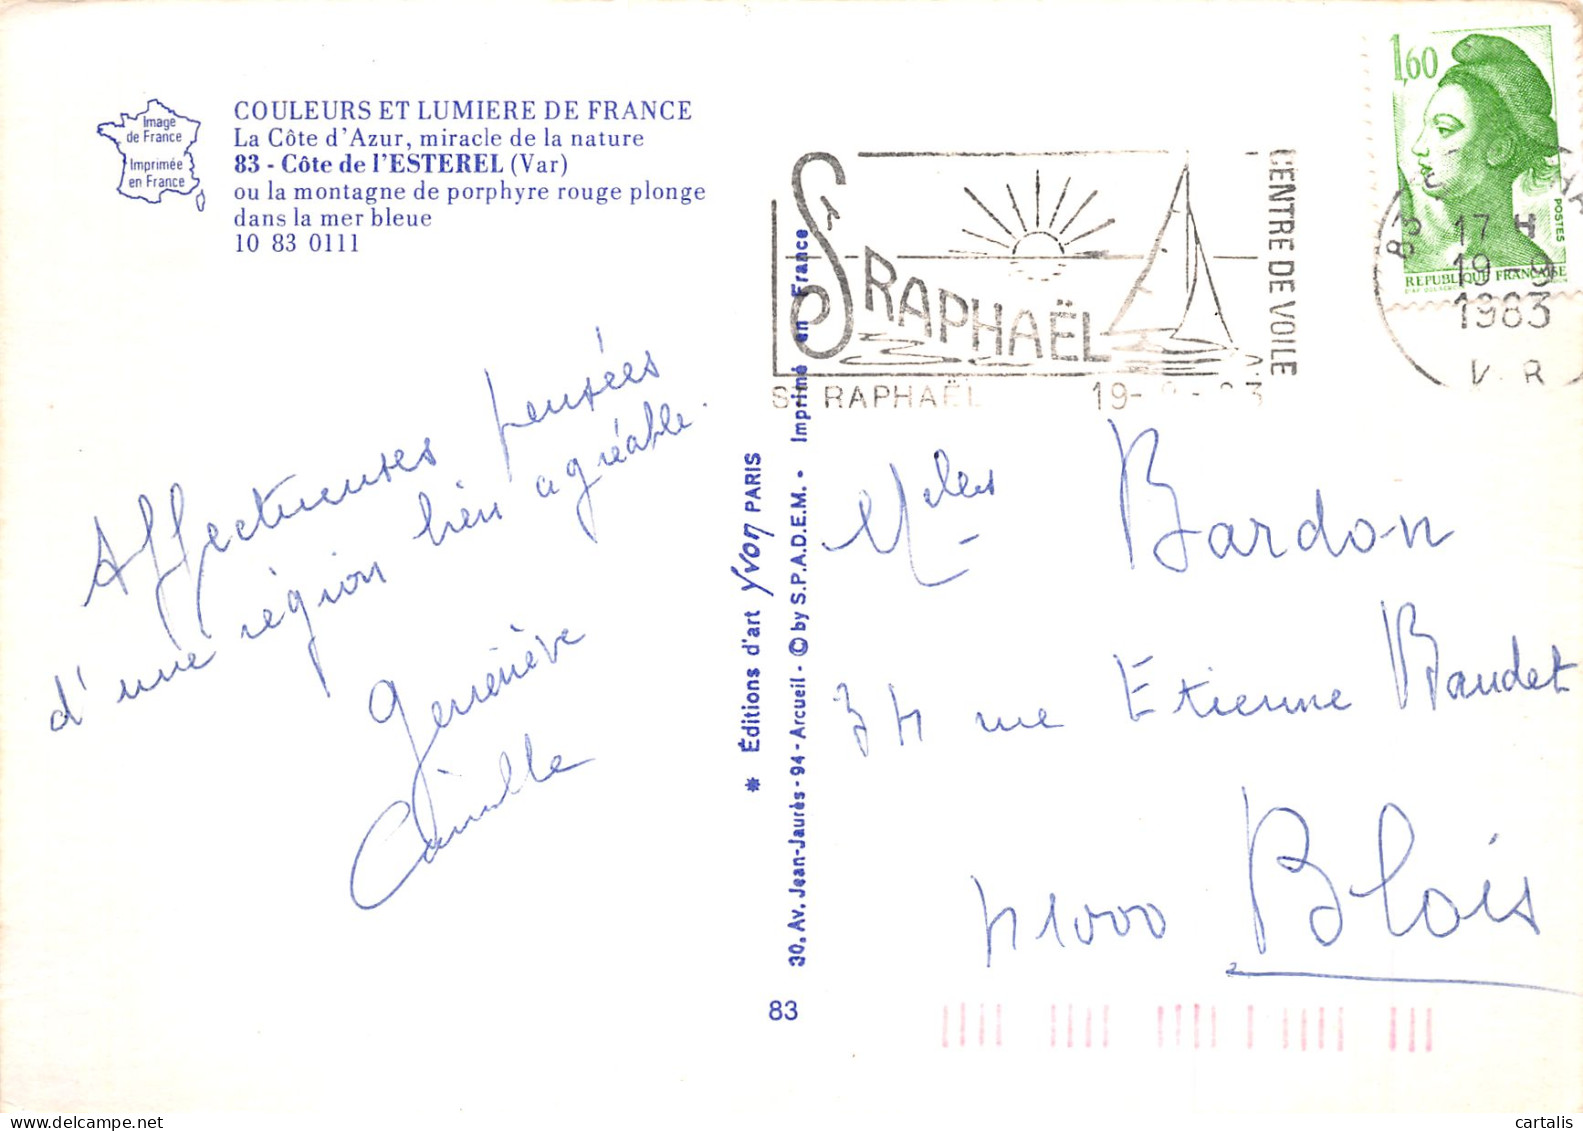 Image
de France
Imprimée
en France
COULEURS ET LUMIERE DE FRANCE
La Côte d'Azur, miracle de la nature
83 - Côte de l'ESTEREL (Var)
ou la montagne de porphyre rouge plonge
dans la mer bleue
10 83 0111
Affectueuses pensées
d'une région bien agréable.
Geneviève
Camille
* Éditions d'art Yvon PARIS
30, Av. Jean-Jaurès - 94 - Arcueil - © by S.P.A.D.E.M. • Imprimé en France
83
St RAPHAËL
CENTRE DE VOILE
St RAPHAËL 19-9-83
1,60
POSTES
REPUBLIQUE FRANÇAISE
83
17 H
19-9
1983
Melles Bardon
34 rue Etienne Baudet
41000 Blois
cartalis